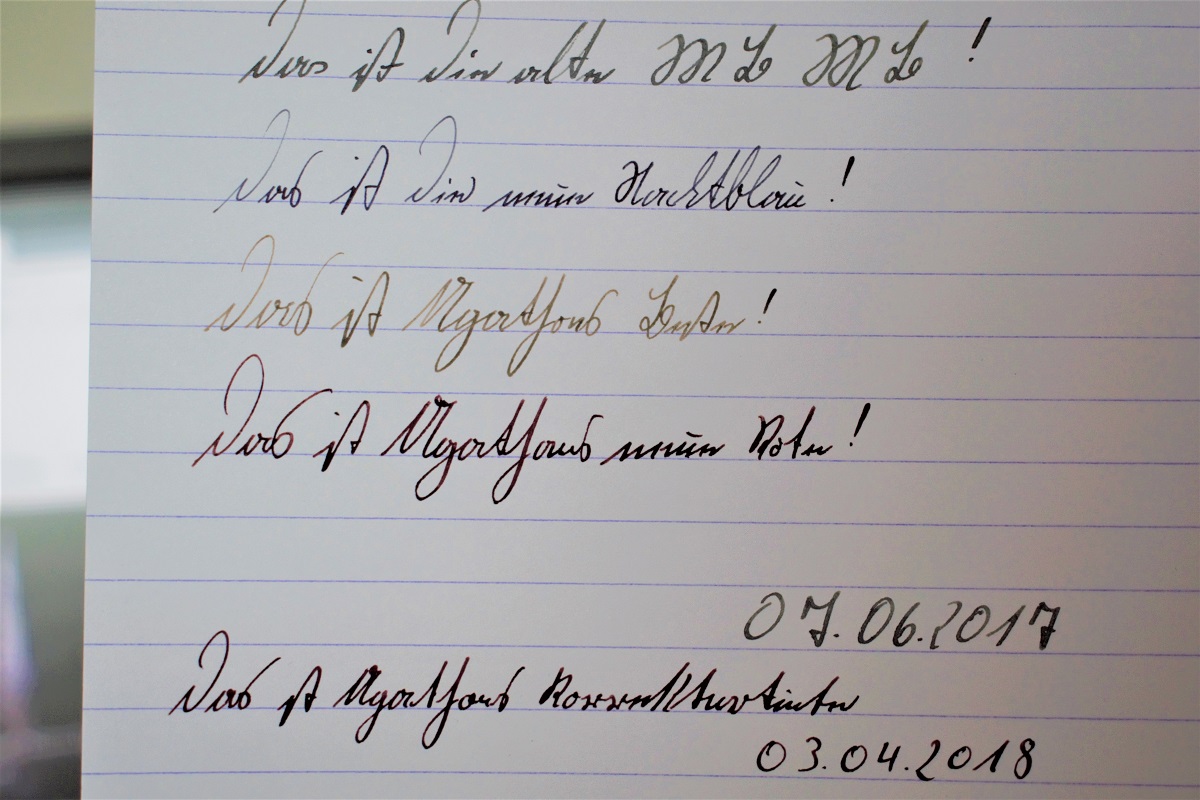 Das ist die alte ML ML!
Das ist die neue Nachtblau!
Das ist Agathons Beste!
Das ist Agathons neue Rote!
07.06.2017
Das ist Agathons Korrekturtinte
03.04.2018